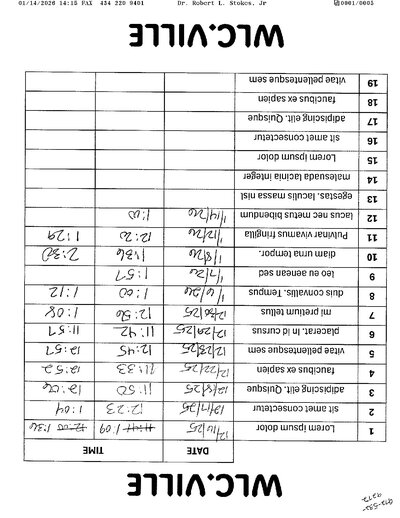 01/14/2026 14:15 FAX 434 220 9401 Dr. Robert L. Stokes, Jr 0001/0005
WLC.VILLE
DATE TIME
1 Lorem ipsum dolor 12/16/25 1:09 1:36
2 sit amet consectetur 12/17/25 12:23 1:04
3 adipiscing elit. Quisque 12/18/25 11:50 12:06
4 faucibus ex sapien 12/22/25 11:33 12:52
5 vitae pellentesque sem 12/23/25 12:45 12:57
6 placerat. In id cursus 12/29/25 11:42 11:57
7 mi pretium tellus 12/30/25 12:56 1:08
8 duis convallis. Tempus 1/6/26 1:00 1:12
9 leo eu aenean sed 1/7/26 1:57
10 diam urna tempor. 1/8/26 1:36 2:30
11 Pulvinar vivamus fringilla 1/12/26 12:20 1:29
12 lacus nec metus bibendum 1/14/26 1:00
13 egestas. Iaculis massa nisl
14 malesuada lacinia integer
15 Lorem ipsum dolor
16 sit amet consectetur
17 adipiscing elit. Quisque
18 faucibus ex sapien
19 vitae pellentesque sem
WLC.VILLE